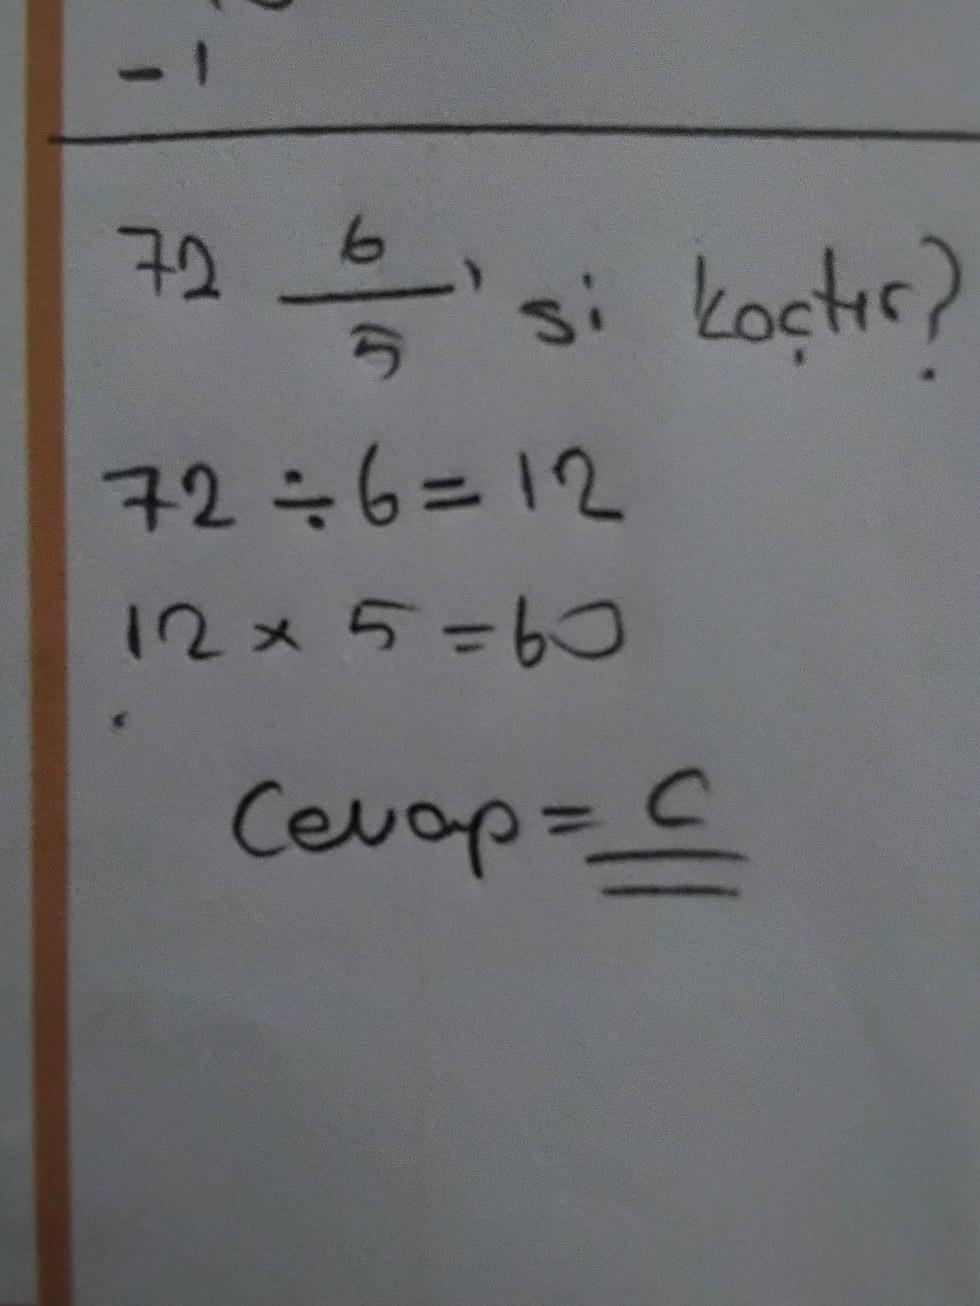 - 1
72 6/5 'si kaçtır?
72 ÷ 6 = 12
12 × 5 = 60
Cevap = C